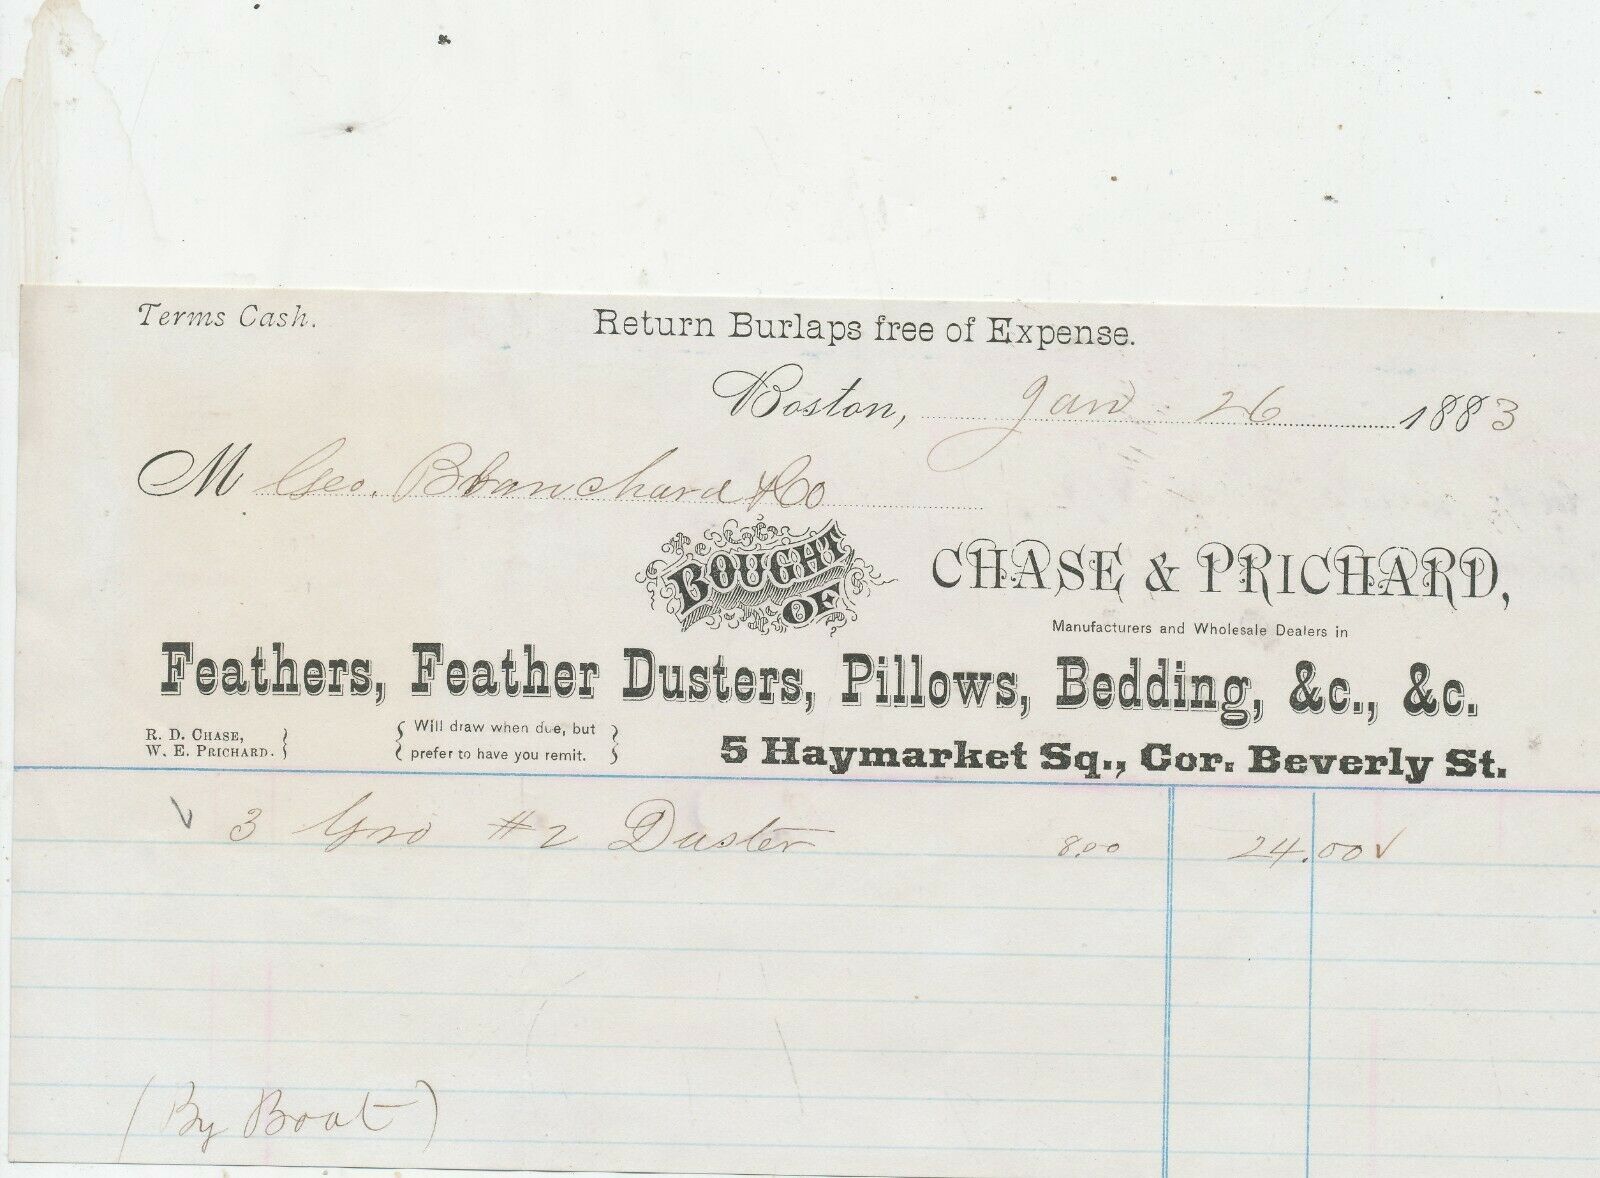 Terms Cash.
Return Burlaps free of Expense.
Boston, Jan 26 1883
M Geo. Blanchard & Co
BOUGHT OF
CHASE & PRICHARD,
Manufacturers and Wholesale Dealers in
Feathers, Feather Dusters, Pillows, Bedding, &c., &c.
R. D. CHASE,
W. E. PRICHARD.
Will draw when due, but
prefer to have you remit.
5 Haymarket Sq., Cor. Beverly St.
✓ 3 Gro #2 Duster 8.00 24.00 ✓
(By Boat)